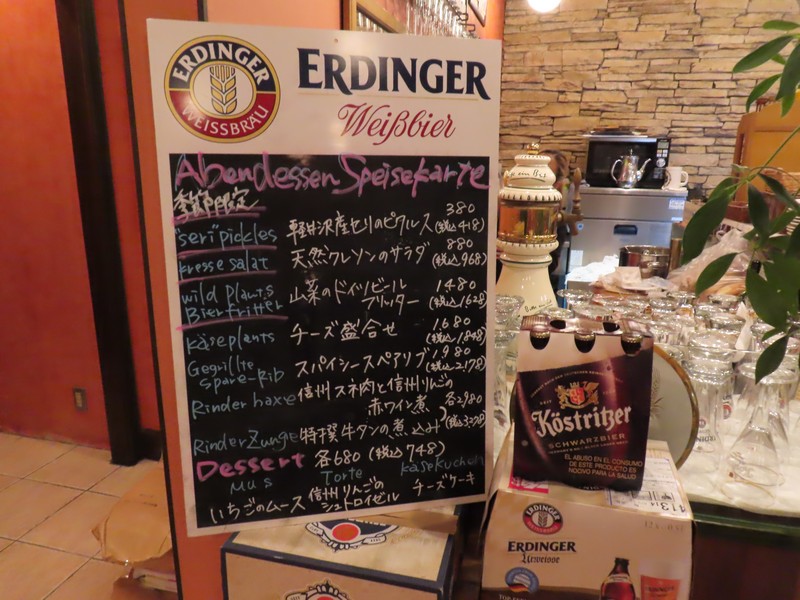 ERDINGER
WEISSBRÄU
ERDINGER
Weißbier
Abendessen Speisekarte
季節限定
"seri" pickles 軽井沢産セリのピクルス 380 (税込418)
kresse salat 天然クレソンのサラダ 880 (税込968)
wild plants Bierfritter 山菜のドイツビール フリッター 1480 (税込1628)
käseplants チーズ盛合せ 1680 (税込1848)
Gegrillte spare-rib スパイシースペアリブ 1980 (税込2178)
Rinder haxe 信州スネ肉と信州りんごの
赤ワイン煮 各2980
Rinder Zunge 特撰牛タンの煮込み (税込3278)
Dessert 各680 (税込748)
Mus Torte Käsekuchen
いちごのムース 信州りんごの シュトロイゼル チーズケーキ
Köstritzer
SCHWARZBIER
EL ABUSO EN EL CONSUMO
DE ESTE PRODUCTO ES
NOCIVO PARA LA SALUD
ERDINGER
ERDINGER
Urweisse